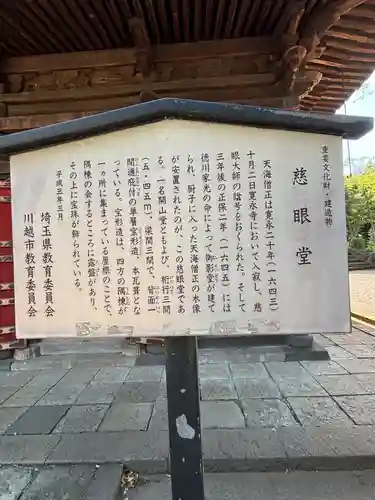 重要文化財・建造物
慈眼堂
天海僧正は寛永二十年（一六四三）
十月二日寛永寺において入寂し、慈
眼大師の諡号をおくられた。そして
三年後の正保二年（一六四五）には
徳川家光の命によって御影堂が建て
られ、厨子に入った天海僧正の木像
が安置されたのが、この慈眼堂であ
る。一名開山堂ともよび、桁行三間
（五、四五m）、梁間三間で、背面一
間通庇付の単層宝形造、本瓦葺とな
っている。宝形造は、四方の隅棟が
一ヵ所に集まっている屋根のことで、
隅棟の会するところに露盤があり、
その上に宝珠が飾られている。
平成三年三月
埼玉県教育委員会
川越市教育委員会